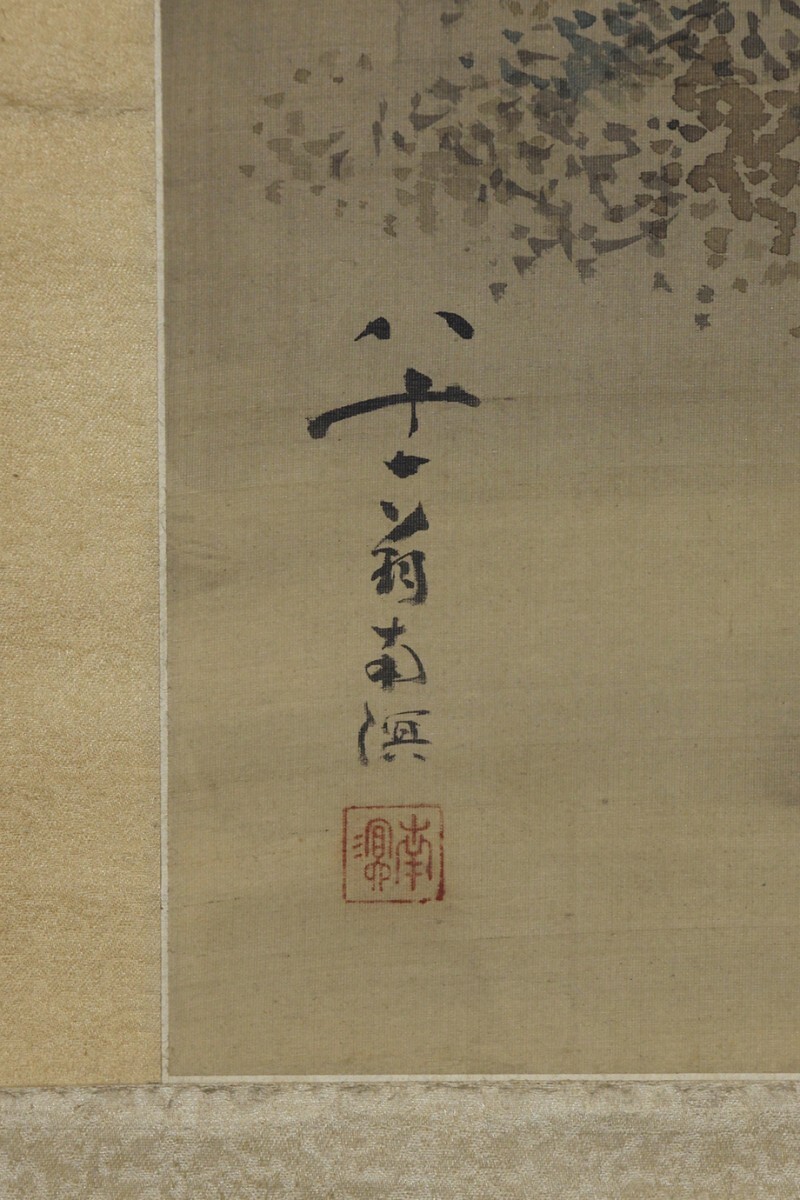 八十一翁南溟
南溟